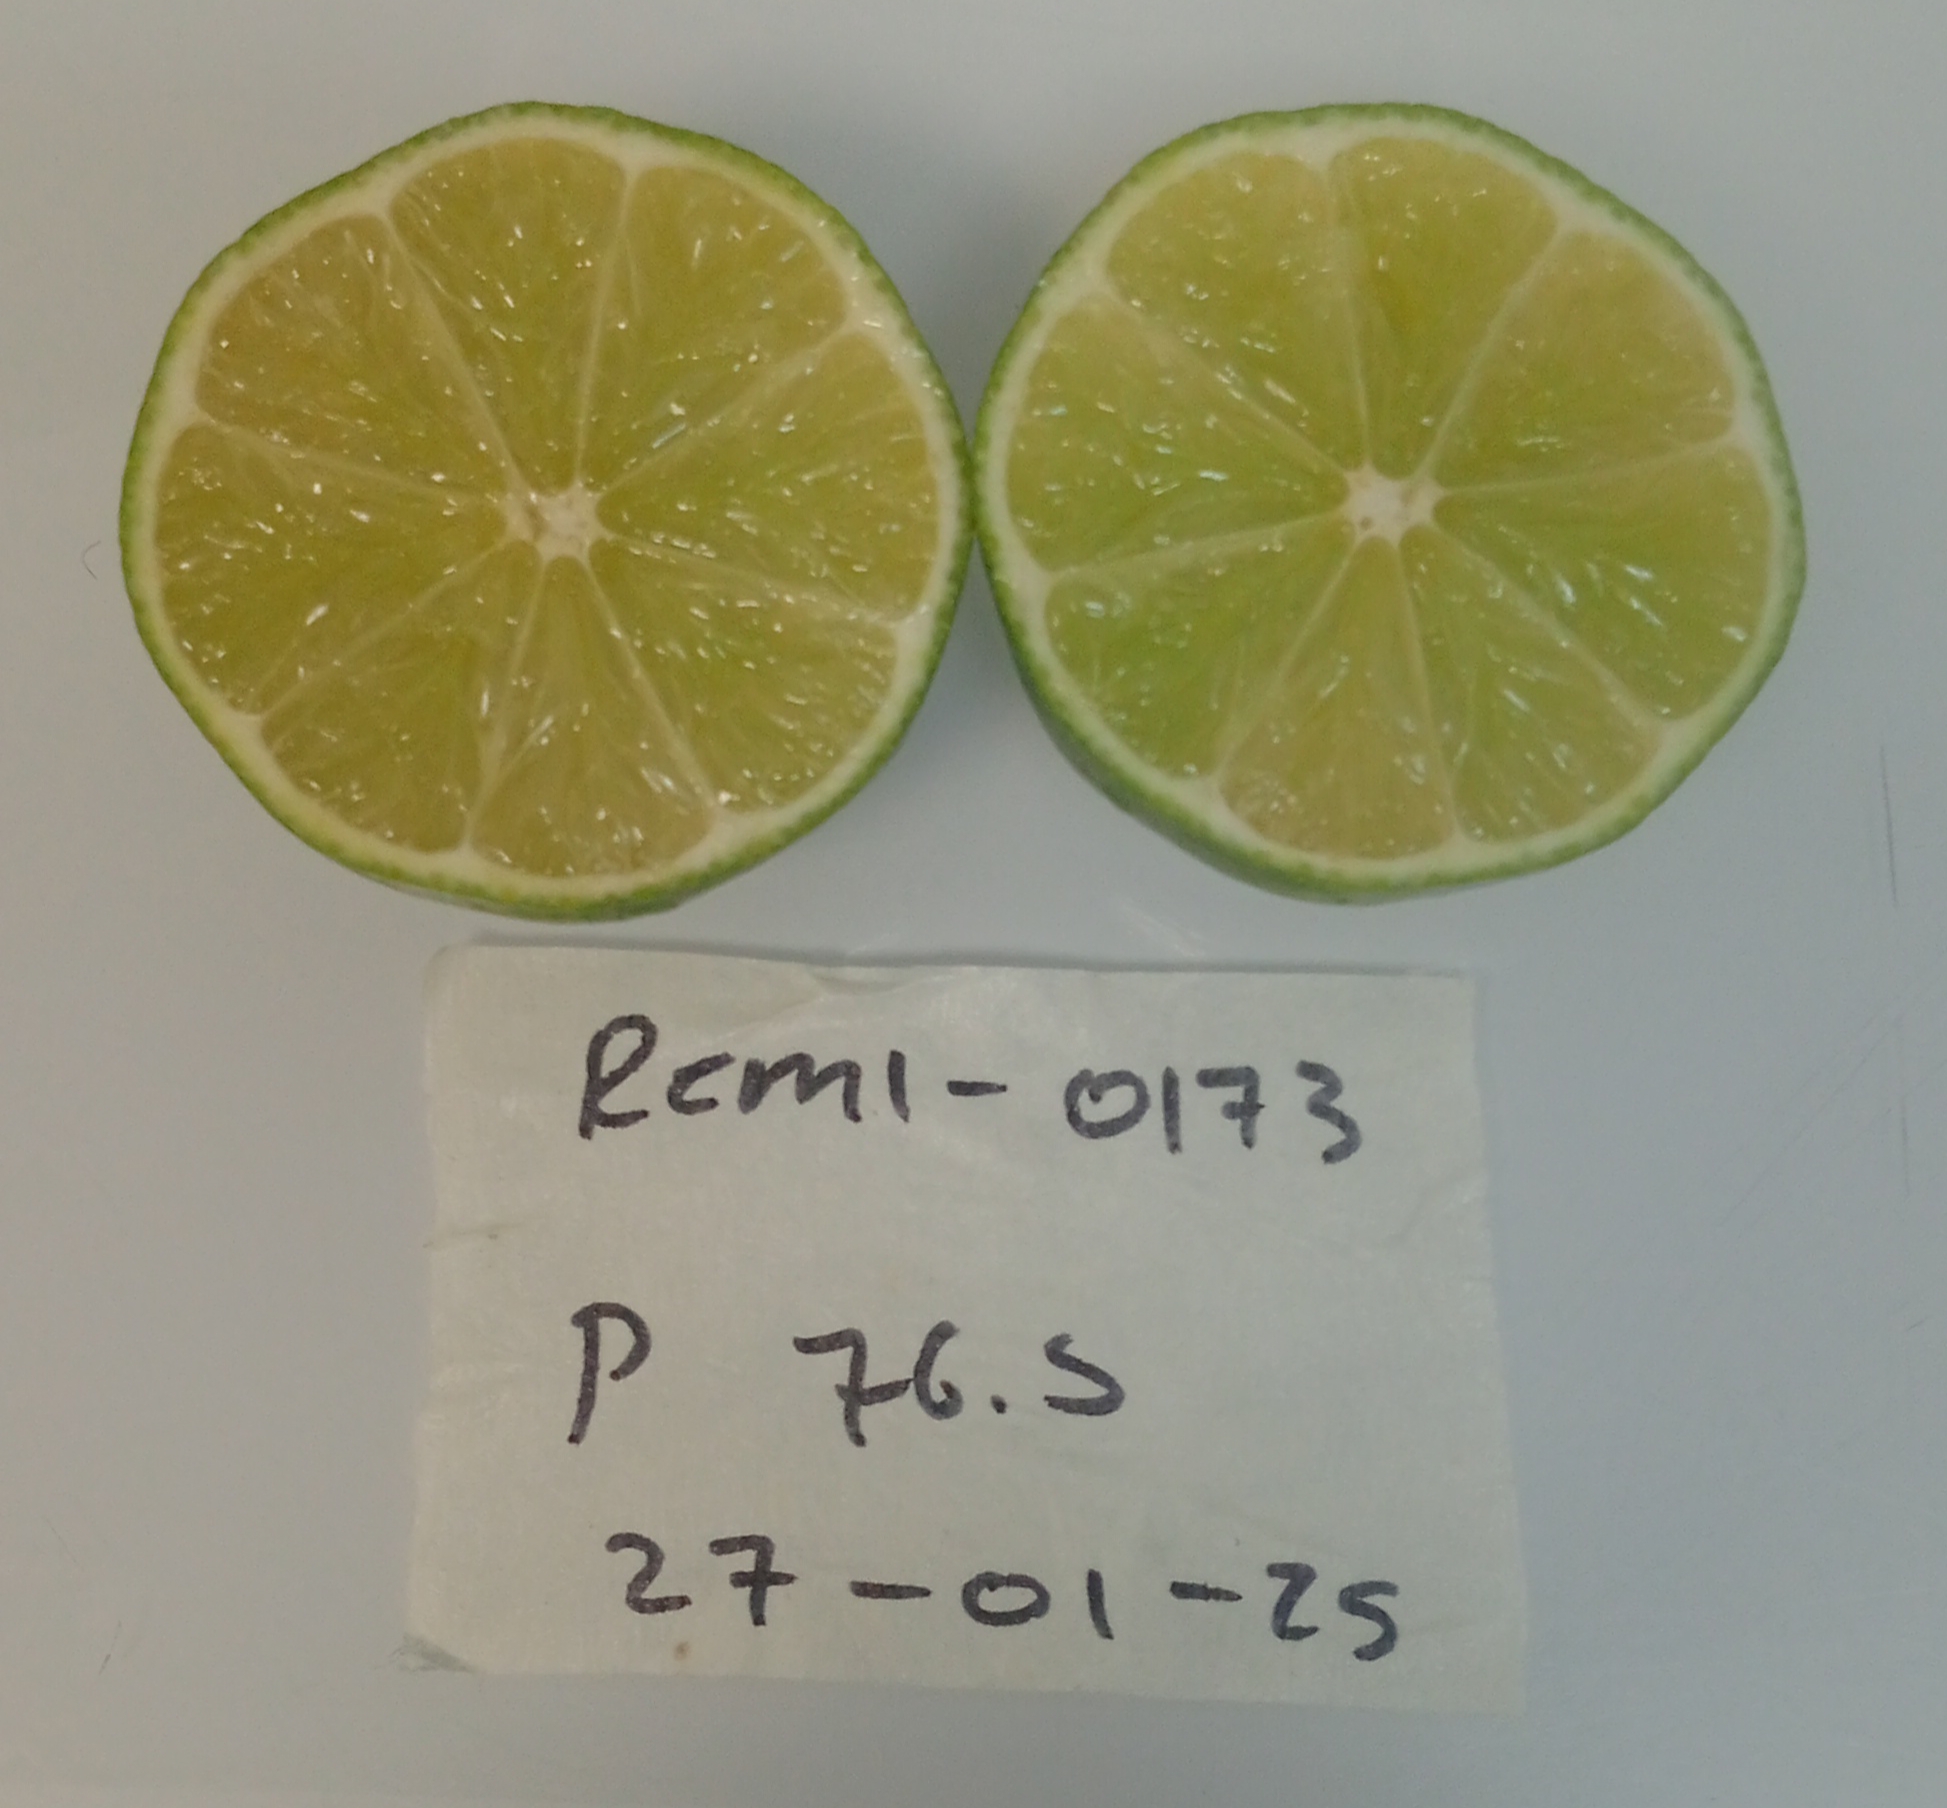 Rcml-0173
P 76.5
27-01-25